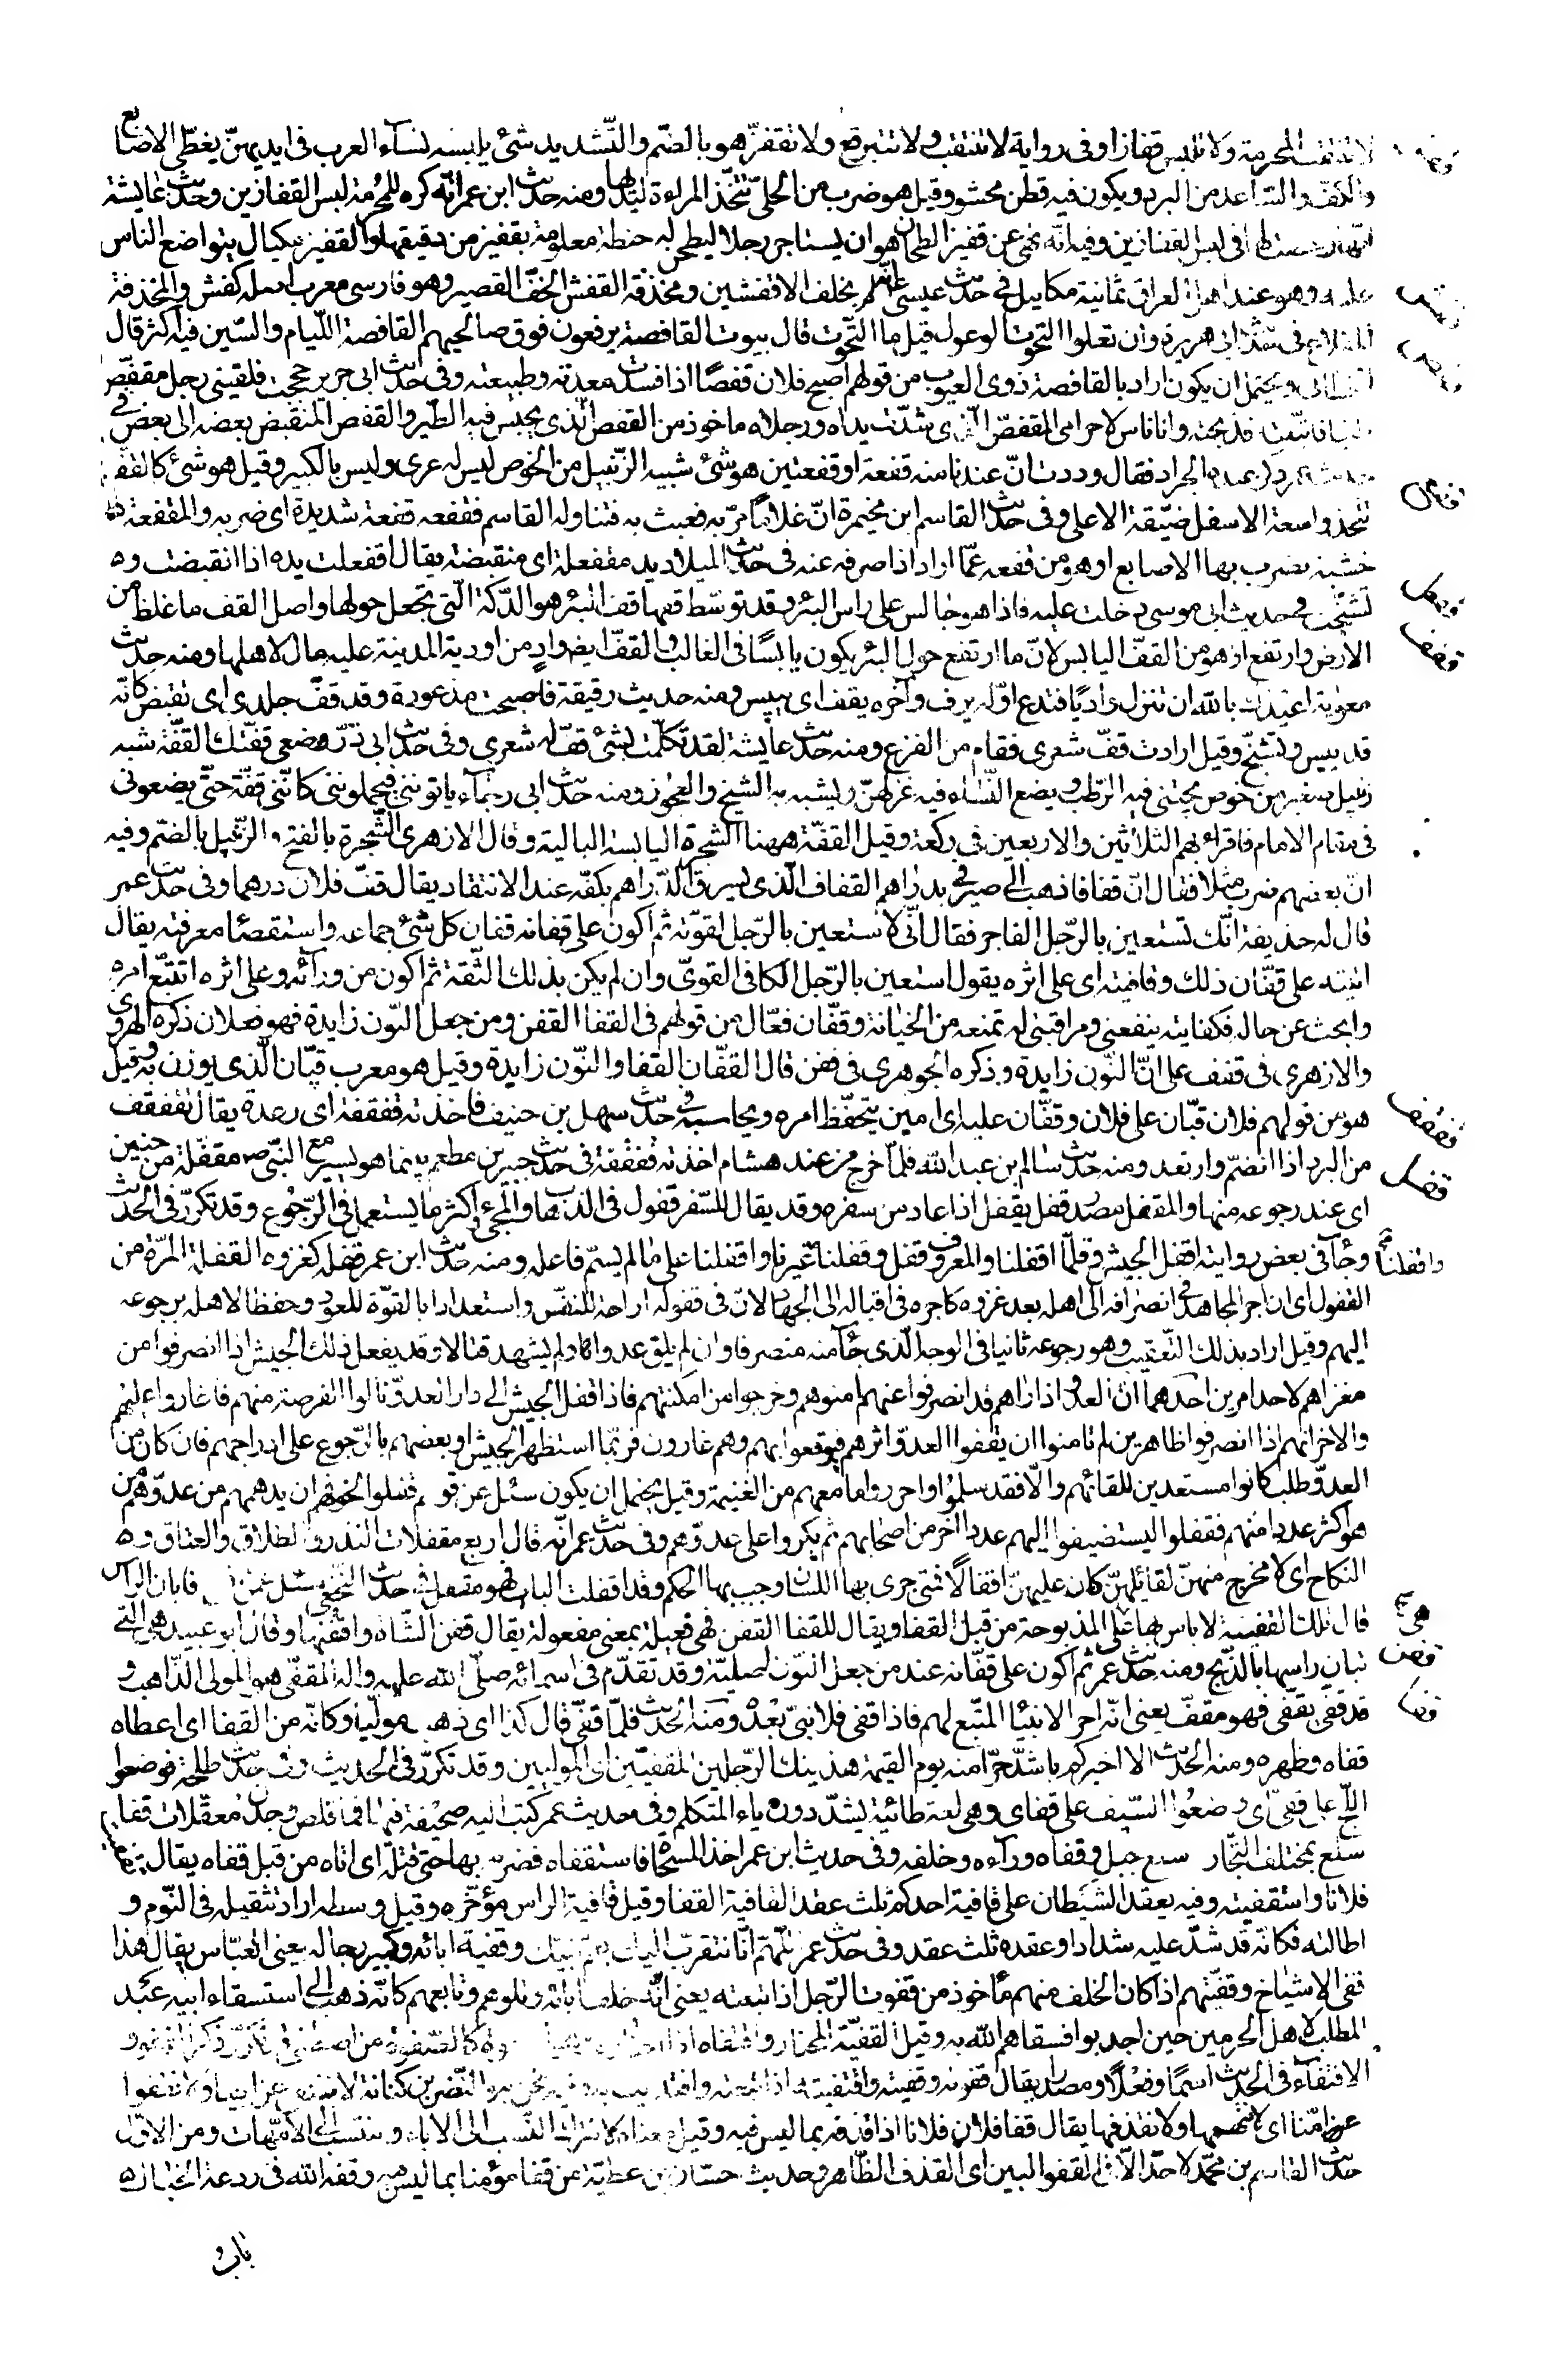 لا تنتقب المحرمة ولا تلبس قفازا وفى رواية لا تنتقب ولا تتبرقع ولا تقفز هو بالضم والتشديد شئ يلبسه نسآء العرب فى ايديهن يغطى الاصابع
والكف والساعد من البرد ويكون فيه قطن محشو وقيل هو ضرب من الحلى تتخذ المراءة ليديها ومنه حديث ابن عمر انه كره للمحرمة لبس القفازين وحديث عايشة
فى لبس القفازين وفيه انه نهى عن قفيز الطحان هو ان يستاجر رجلا ليطحن له حنطة معلومة بقفيز من دقيقها والقفيز مكيال يتواضع الناس
عليه وهو عند اهل العراق ثمانية مكاييل فى حديث عيسى انه لم يخلف الا قفشين ومخذفة القفش الخف القصير وهو فارسى معرب اصله كفش والمخذفة
المقلاع فى حديث ابى هريرة وان تعلوا التحوت الوعول قيل ما التحوت قال بيوت القافصة يرفعون فوق صالحيهم القافصة الليام والسين فيه اكثر قال
الخطابى ويحتمل ان يكون اراد بالقافصة ذوى العيوب من قولهم اصبح فلان قفصا اذا فسدت معدته وطبيعته وفى حديث ابى جرير حججت فلقينى رجل مقفص
ظبيا فاتبعته فذبحته وانا ناس لاحرامى المقفص الذى شدت يداه ورجلاه ماخوذ من القفص الذى يحبس فيه الطير والقفص المنقبض بعضه الى بعض فى
حديث عمر ذكر عنده الجراد فقال وددت ان عندنا منه قفعة او قفعتين هو شئ شبيه الزنبيل من الخوص ليس له عرى وليس بالكبير وقيل هو شئ كالقفة
تتخذ واسعة الاسفل ضيقة الاعلى وفى حديث القاسم ابن مخيمرة ان غلاما مر به فعبث به فتناوله القاسم فقفعه قفعة شديدة اى ضربه والمقفعة
خشبة يضرب بها الاصابع او هو من قفعه عما اراد اذا صرفه عنه فى حديث الميلاد يد مقفعلة اى منقبضة يقال اقفعلت يده اذا انقبضت و
تشنجت فى حديث ابى موسى دخلت عليه فاذا هو جالس على راس البئر وقد توسط قفها قف البئر هو الدكة التى تجعل حولها واصل القف ما غلظ من
الارض وارتفع او هو من القف اليابس لان ما ارتفع حول البئر يكون يابسا فى الغالب والقف ايضا واد من اودية المدينة عليه مال لاهلها ومنه حديث
معوية اعيذك بالله ان تنزل واديا فتدع اوله يرف وآخره يقف اى ييبس ومنه حديث رقيقة فاصبحت مذعورة وقد قف جلدى اى تقبض كانه
قد يبس وتشنج وقيل ارادت قف شعرى فقام من الفزع ومنه حديث عايشة لقد تكلمت بشئ قف له شعرى وفى حديث ابى ذر وضعى قفتك القفة شبه
زنبيل صغير من خوص يجتنى فيه الرطب ويضع النساء فيه غزلهن ويشبه به الشيخ والعجوز ومنه حديث ابى رجآء ياتوننى فيحملوننى كاننى قفة حتى يضعونى
فى مقام الامام فاقراء بهم الثلاثين والاربعين فى ركعة وقيل القفة ههنا الشجرة اليابسة البالية وقال الازهرى الشجرة بالفتح والزنبيل بالضم وفيه
ان بعضهم ضرب مثلا فقال ان قفافا ذهب الى صيرفى بدراهم القفاف الذى يسرق الدراهم بكفه عند الانتقاد يقال قف فلان درهما وفى حديث عمر
قال له حذيفة انك تستعين بالرجل الفاجر فقال انى لاستعين بالرجل لقوته ثم اكون على قفانه قفان كل شئ جماعه واستقصاء معرفته يقال
اتيته على قفان ذلك وقافيته اى على اثره يقول استعين بالرجل الكافى القوى وان لم يكن بذلك الثقة ثم اكون من ورآئه وعلى اثره اتتبع امره
وابحث عن حاله فكفايته ينفعنى ومراقبتى له تمنعه من الخيانة وقفان فعال من قولهم فى القفا القفن ومن جعل النون زايدة فهو فعلان ذكره الهروى
والازهرى فى قفف على ان النون زايدة وذكره الجوهرى فى قفن قال القفان القفا والنون زايدة وقيل هو معرب قبان الذى يوزن به وقيل
هو من قولهم فلان قبان على فلان وقفان عليه اى امين يتحفظ امره ويحاسبه فى حديث سهل بن حنيف فاخذته قفقفة اى رعدة يقال تقفقف
من البرد اذا انضم وارتعد ومنه حديث سالم بن عبد الله فلما خرج من عند هشام اخذته قفقفة فى حديث جبير بن مطعم بينما هو يسير مع النبى ص مقفلة من حنين
اى عند رجوعه منها والمقفل مصدر قفل يقفل اذا عاد من سفره وقد يقال للسفر قفول فى الذهاب والمجئ واكثر ما يستعمل فى الرجوع وقد تكرر فى الحديث
وجآء فى بعض رواياته اقفل الجيش وقلما اقفلنا والمعروف قفل وقفلنا غيرنا واقفلنا على ما لم يسم فاعله ومنه حديث ابن عمر قفلة كغزوه القفلة المرة من
القفول اى ان اجر المجاهد فى انصرافه الى اهله بعد غزوه كاجره فى اقباله الى الجهاد لان فى قفوله اراحة للنفس واستعدادا بالقوة للعود وحفظا لاهله برجوعه
اليهم وقيل اراد بذلك التعقيب وهو رجوعه ثانيا فى الوجه الذى جآء منه منصرفا وان لم يلق عدوا ولم يشهد قتالا وقد يفعل ذلك الجيش اذا انصرفوا من
مغزاهم لاحد امرين احدهما ان العدو اذا راهم قد انصرفوا عنهم امنوهم وخرجوا من امكنتهم فاذا قفل الجيش الى دار العدو نالوا الفرصة منهم فاغاروا عليهم
والاخر انهم اذا انصرفوا ظاهرين لم يامنوا ان يقفوا العدو اثرهم فيوقعوا بهم وهم غارون فربما استظهر الجيش او بعضهم بالرجوع على ادراجهم فان كان من
العدو طلب كانوا مستعدين للقائهم والا فقد سلموا واحرزوا ما معهم من الغنيمة وقيل يحتمل ان يكون سئل عن قوم قفلوا لخوفهم ان يدهمهم من عدوهم من
هو اكثر عددا منهم فقفلوا ليستضيفوا اليهم عددا اخر من اصحابهم ثم يكروا على عدوهم وفى حديث عمر انه قال اربع مقفلات النذر والطلاق والعتاق و
النكاح اى لا مخرج منهن لقائلهن كان عليهن اقفالا فمتى جرى بها اللسان وجب بها الحكم وقد اقفلت الباب فهو مقفل فى حديث النخعى سئل عمن فابان الراس
قال تلك القفينة لا باس بها هى المذبوحة من قبل القفا ويقال للقفا القفن فهى فعيلة بمعنى مفعولة يقال قفن الشاه واقفنها وقال ابو عبيد هى التى
تبان راسها بالذبح ومنه حديث عمر ثم اكون على قفانه عند من جعل النون اصلية وقد تقدم فى اسمائه صلى الله عليه واله المقفى هو المولى الذاهب و
قد قفى يقفى فهو مقف يعنى انه اخر الانبياء المتبع لهم فاذا قفى فلا نبى بعده ومنه الحديث فلما قفى قال كذا اى ذهب موليا وكانه من القفا اى اعطاه
قفاه وظهره ومنه الحديث الا اخبركم باشد حرا منه يوم القيمة هذينك الرجلين المقفيين اى الموليين وقد تكرر فى الحديث وفى حديث طلحة فوضعوا
اللج على قفى اى وضعوا السيف على قفاى وهى لغة طائية يشددون ياء المتكلم وفى حديث عمر كتب اليه صحيفة فيها فما قلص وجدن معقلات قفا
سلع بمختلف التجار سلع جبل وقفاه ورآءه وخلفه وفى حديث ابن عمر اخذ المسحاة فاستقفاه فضربه بها حتى قتله اى اتاه من قبل قفاه يقال تقفيت
فلانا واستقفيته وفيه يعقد الشيطان على قافية احدكم ثلث عقد القافية القفا وقيل قافية الراس مؤخره وقيل وسطه اراد تثقيله فى النوم و
اطالته فكانه قد شد عليه شدادا وعقده ثلث عقد وفى حديث عمر اللهم انا نتقرب اليك بعم نبيك وقفية ابائه وكبير رجاله يعنى العباس يقال هذا
قفى الاشياخ وقفيتهم اذا كان الخلف منهم مأخوذ من قفوت الرجل اذا تبعته يعنى انه خلف ابائه وتلوهم وتابعهم كانه ذهب الى استسقاء ابيه عبد
المطلب لاهل الحرمين حين اجدبوا فسقاهم الله به وقيل القفية المختار واقتفاه اذا اختاره تكرر ذكر القفو و
الاقتفآء فى الحديث اسما وفعلا ومصدرا يقال قفوته وقفيته واقتفيته اذا تبعته واقتديت به وفيه نحن بنو النضر بن كنانة لا ننتفى عن ابينا ولا نقفوا
عن امنا اى لا نتهمها ولا نقذفها يقال قفا فلان فلانا اذا قذفه بما ليس فيه وقيل معناه لا نترك النسب الى الاباء وننتسب الى الامهات ومن الاول
حديث القاسم بن محمد لا حد الا فى القفو البين اى القذف الظاهر وحديث حسان بن عطية من قفا مؤمنا بما ليس فيه وقفه الله فى ردغة الخبال
قفش
قفص
قفع
قفعل
قفف
قفقف
قفل
واقفلنا
قفن
قفا
باب